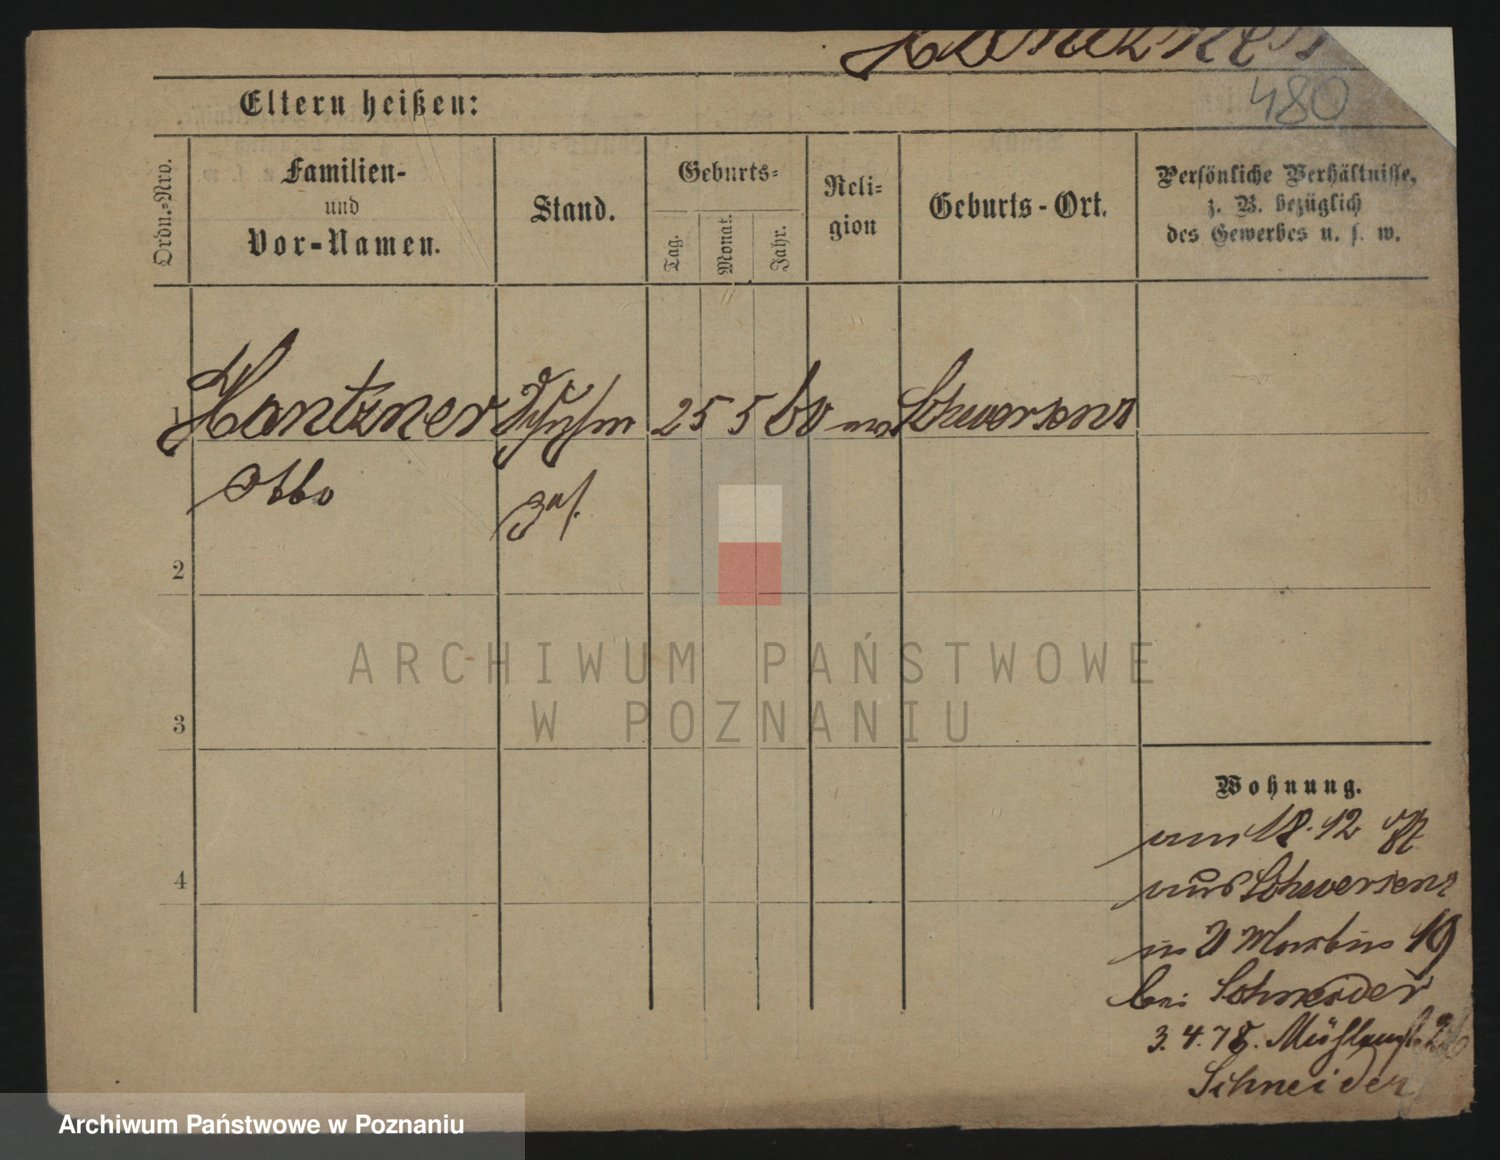 480
Eltern heißen:
Ordn.-Nro.
Familien-
und
Vor-Namen.
Stand.
Geburts-
Tag.
Monat.
Jahr.
Reli-
gion
Geburts-Ort.
Persönliche Verhältnisse,
z. B. bezüglich
des Gewerbes u. s. w.
1 Hantzner 25 5 60 Schwersenz
Otto
2
3
4
Wohnung.
am 18. 12
aus Schwersenz
Martin 19
bei Schneider
3. 4. 78.
Schneider
ARCHIWUM PAŃSTWOWE
W POZNANIU
Archiwum Państwowe w Poznaniu